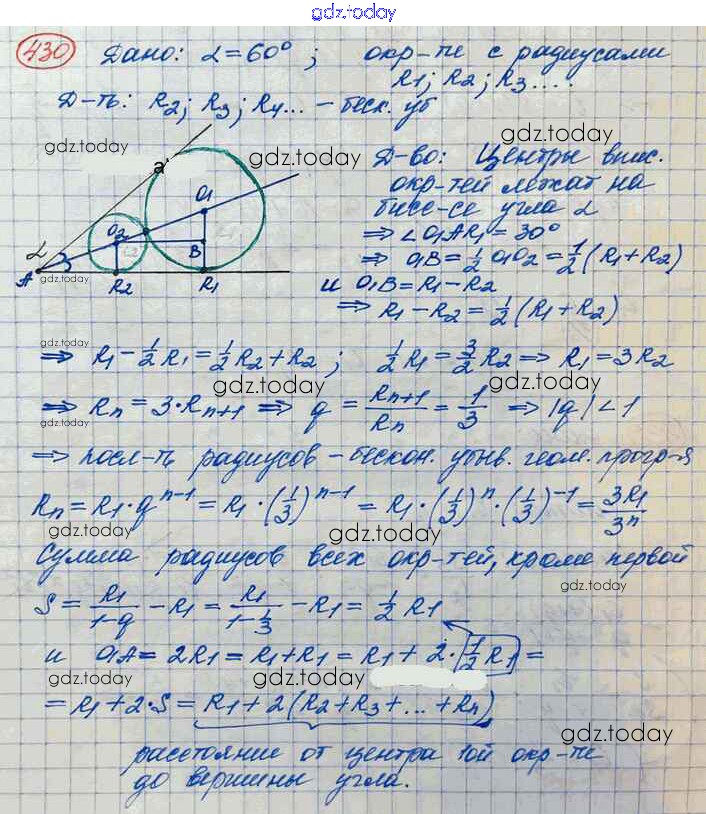 gdz.today
430 Дано: α = 60° ; окр-ти с радиусами
R1; R2; R3 ....
Д-ть: R2; R3; R4... - беск. уб
gdz.today
gdz.today
gdz.today
a'
α
A
O2
O1
B
R2
R1
gdz.today
Д-во: Центры впис.
окр-тей лежат на
бисс-се угла α
⇒ ∠O1AR1 = 30°
⇒ O1B = 1/2 O1O2 = 1/2 (R1 + R2)
и O1B = R1 - R2
⇒ R1 - R2 = 1/2 (R1 + R2)
gdz.today
⇒ R1 - 1/2 R1 = 1/2 R2 + R2 ; 1/2 R1 = 3/2 R2 ⇒ R1 = 3R2
gdz.today gdz.today
⇒ Rn = 3·Rn+1 ⇒ q = Rn+1/Rn = 1/3 ⇒ |q| < 1
gdz.today
⇒ посл-ть радиусов - бескон. убыв. геом. прогр-я
Rn = R1·q^n-1 = R1·(1/3)^n-1 = R1·(1/3)^n·(1/3)^-1 = 3R1/3^n
gdz.today gdz.today
Сумма радиусов всех окр-тей, кроме первой
gdz.today
S = R1/1-q - R1 = R1/1-1/3 - R1 = 1/2 R1
и O1A = 2R1 = R1 + R1 = R1 + 2·1/2 R1 =
gdz.today gdz.today gdz.today
= R1 + 2·S = R1 + 2(R2 + R3 + ... + Rn)
gdz.today
расстояние от центра 1ой окр-ти
до вершины угла.